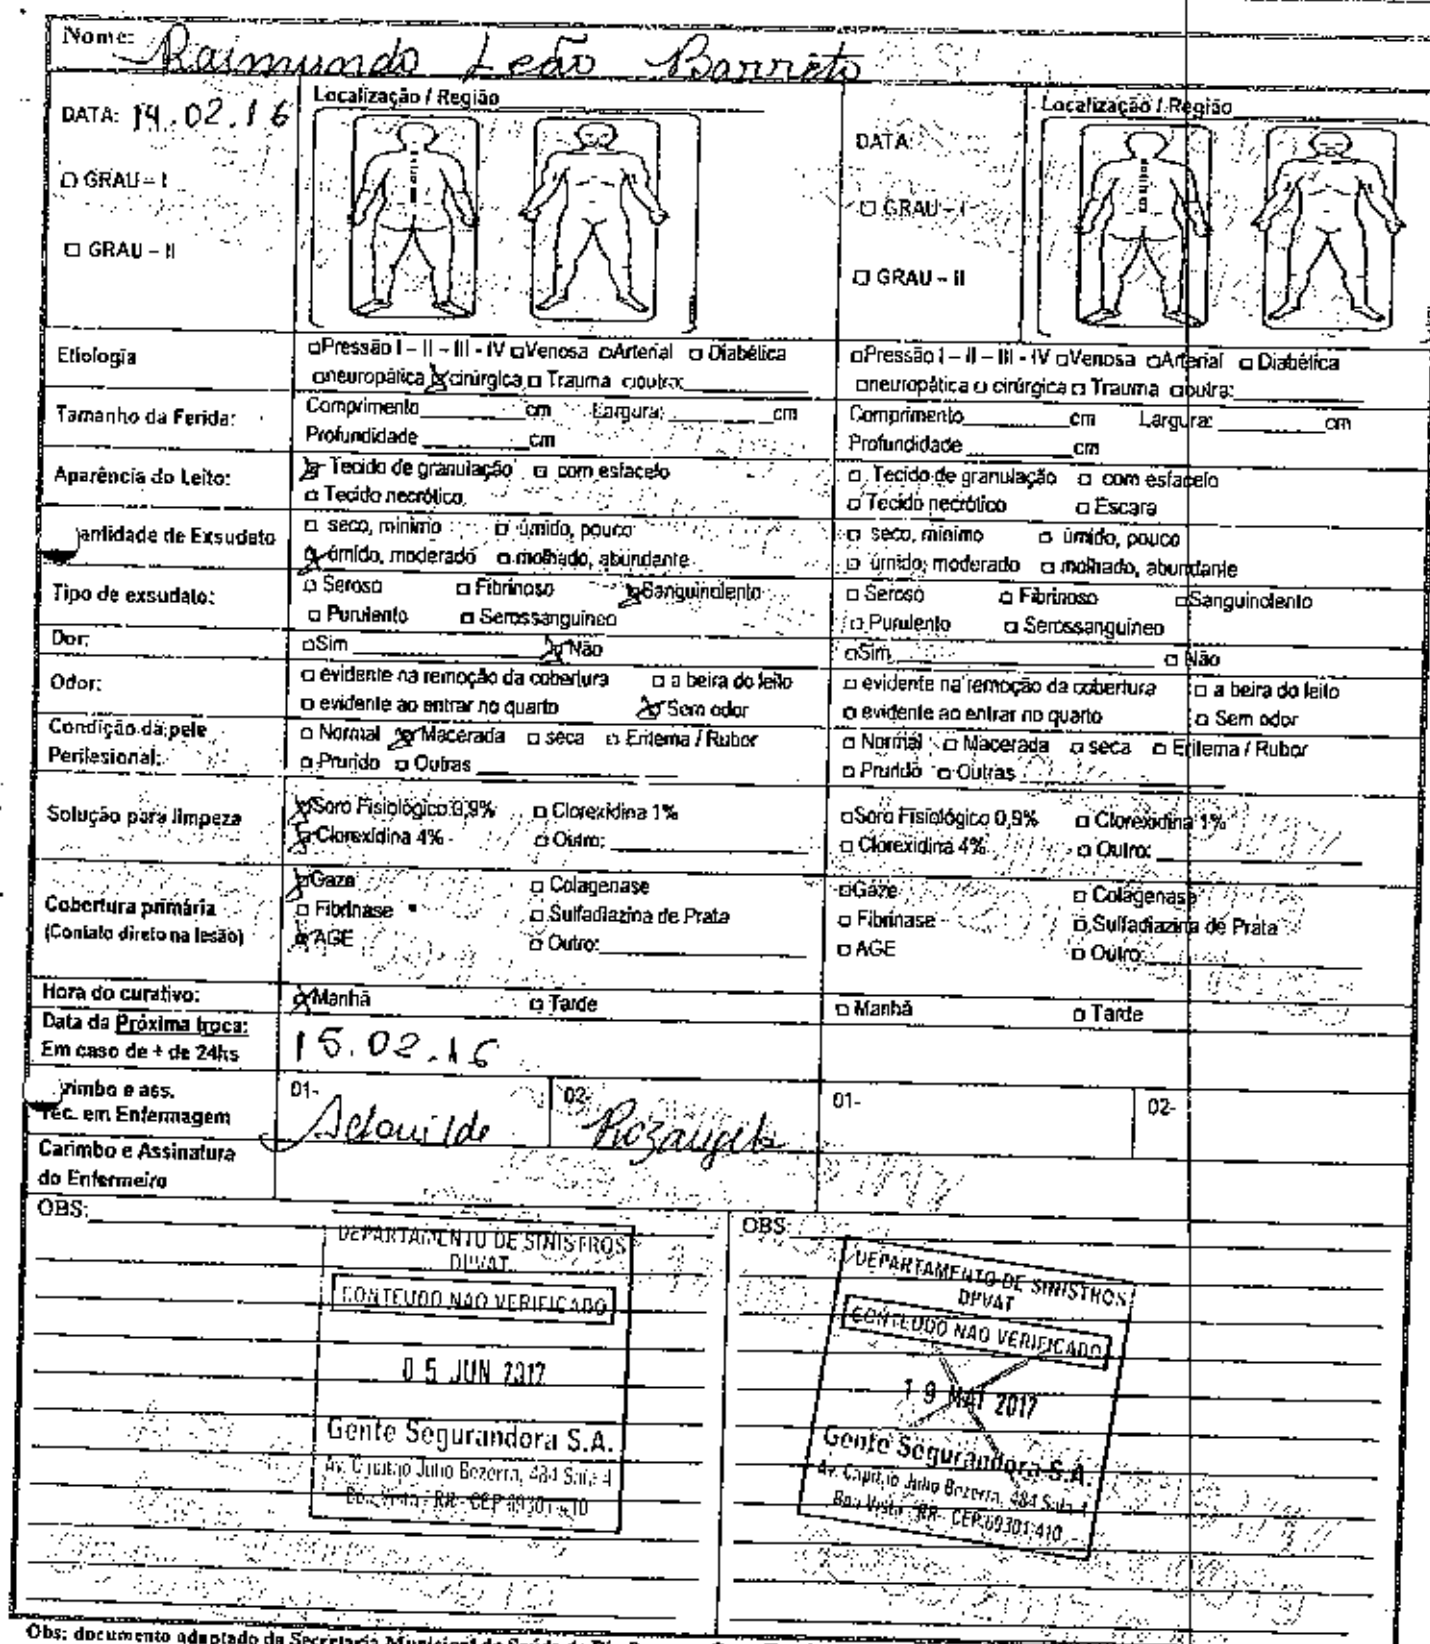 Nome: Raimundo Leão Barreto
DATA: 14.02.16
□ GRAU – I
□ GRAU – II
Localização / Região
DATA:
□ GRAU – I
□ GRAU – II
Localização / Região
Etiologia
□Pressão I – II – III - IV □Venosa □Arterial □ Diabética
□neuropática ☒cirúrgica □ Trauma □outra:
□Pressão I – II – III - IV □Venosa □Arterial □ Diabética
□neuropática □ cirúrgica □ Trauma □outra:
Tamanho da Ferida:
Comprimento ______cm Largura: ______cm
Profundidade ______cm
Comprimento ______cm Largura: ______cm
Profundidade ______cm
Aparência do Leito:
☒ Tecido de granulação □ com esfacelo
□ Tecido necrótico
□ Tecido de granulação □ com esfacelo
□ Tecido necrótico □ Escara
antidade de Exsudato
□ seco, mínimo □ úmido, pouco
☒ úmido, moderado □ molhado, abundante
□ seco, mínimo □ úmido, pouco
□ úmido, moderado □ molhado, abundante
Tipo de exsudato:
□ Seroso □ Fibrinoso ☒Sanguinolento
□ Purulento □ Serossanguíneo
□ Seroso □ Fibrinoso □Sanguinolento
□ Purulento □ Serossanguíneo
Dor:
□Sim ______ ☒Não
□Sim ______ □ Não
Odor:
□ evidente na remoção da cobertura □ a beira do leito
□ evidente ao entrar no quarto ☒ Sem odor
□ evidente na remoção da cobertura □ a beira do leito
□ evidente ao entrar no quarto □ Sem odor
Condição da pele
Perilesional:
□ Normal ☒ Macerada □ seca □ Eritema / Rubor
□ Prurido □ Outras
□ Normal □ Macerada □ seca □ Eritema / Rubor
□ Prurido □ Outras
Solução para limpeza
☒Soro Fisiológico 0,9% □ Clorexidina 1%
☒Clorexidina 4% □ Outro:
□Soro Fisiológico 0,9% □ Clorexidina 1%
□ Clorexidina 4% □ Outro:
Cobertura primária
(Contato direto na lesão)
☒Gaze □ Colagenase
□ Fibrinase □ Sulfadiazina de Prata
☒ AGE □ Outro:
□Gaze □ Colagenase
□ Fibrinase □ Sulfadiazina de Prata
□ AGE □ Outro:
Hora do curativo:
☒Manhã □ Tarde
□ Manhã □ Tarde
Data da Próxima troca:
Em caso de + de 24hs
15.02.16
rimbo e ass.
Téc. em Enfermagem
01- 02- Rozangela
01- 02-
Carimbo e Assinatura
do Enfermeiro
OBS:
DEPARTAMENTO DE SINISTROS
DPVAT
CONTEUDO NAO VERIFICADO
05 JUN 2017
Gente Segurandora S.A.
Av. Capitão Julio Bezerra, 484 Sala 4
Boa Vista - RR - CEP 69301-410
OBS:
DEPARTAMENTO DE SINISTROS
DPVAT
CONTEUDO NAO VERIFICADO
19 MAI 2017
Gente Segurandora S.A
Av. Capitão Julio Bezerra, 484 Sala 4
Boa Vista - RR - CEP 69301-410
Obs: documento adaptado da Secretaria Municipal de Saúde